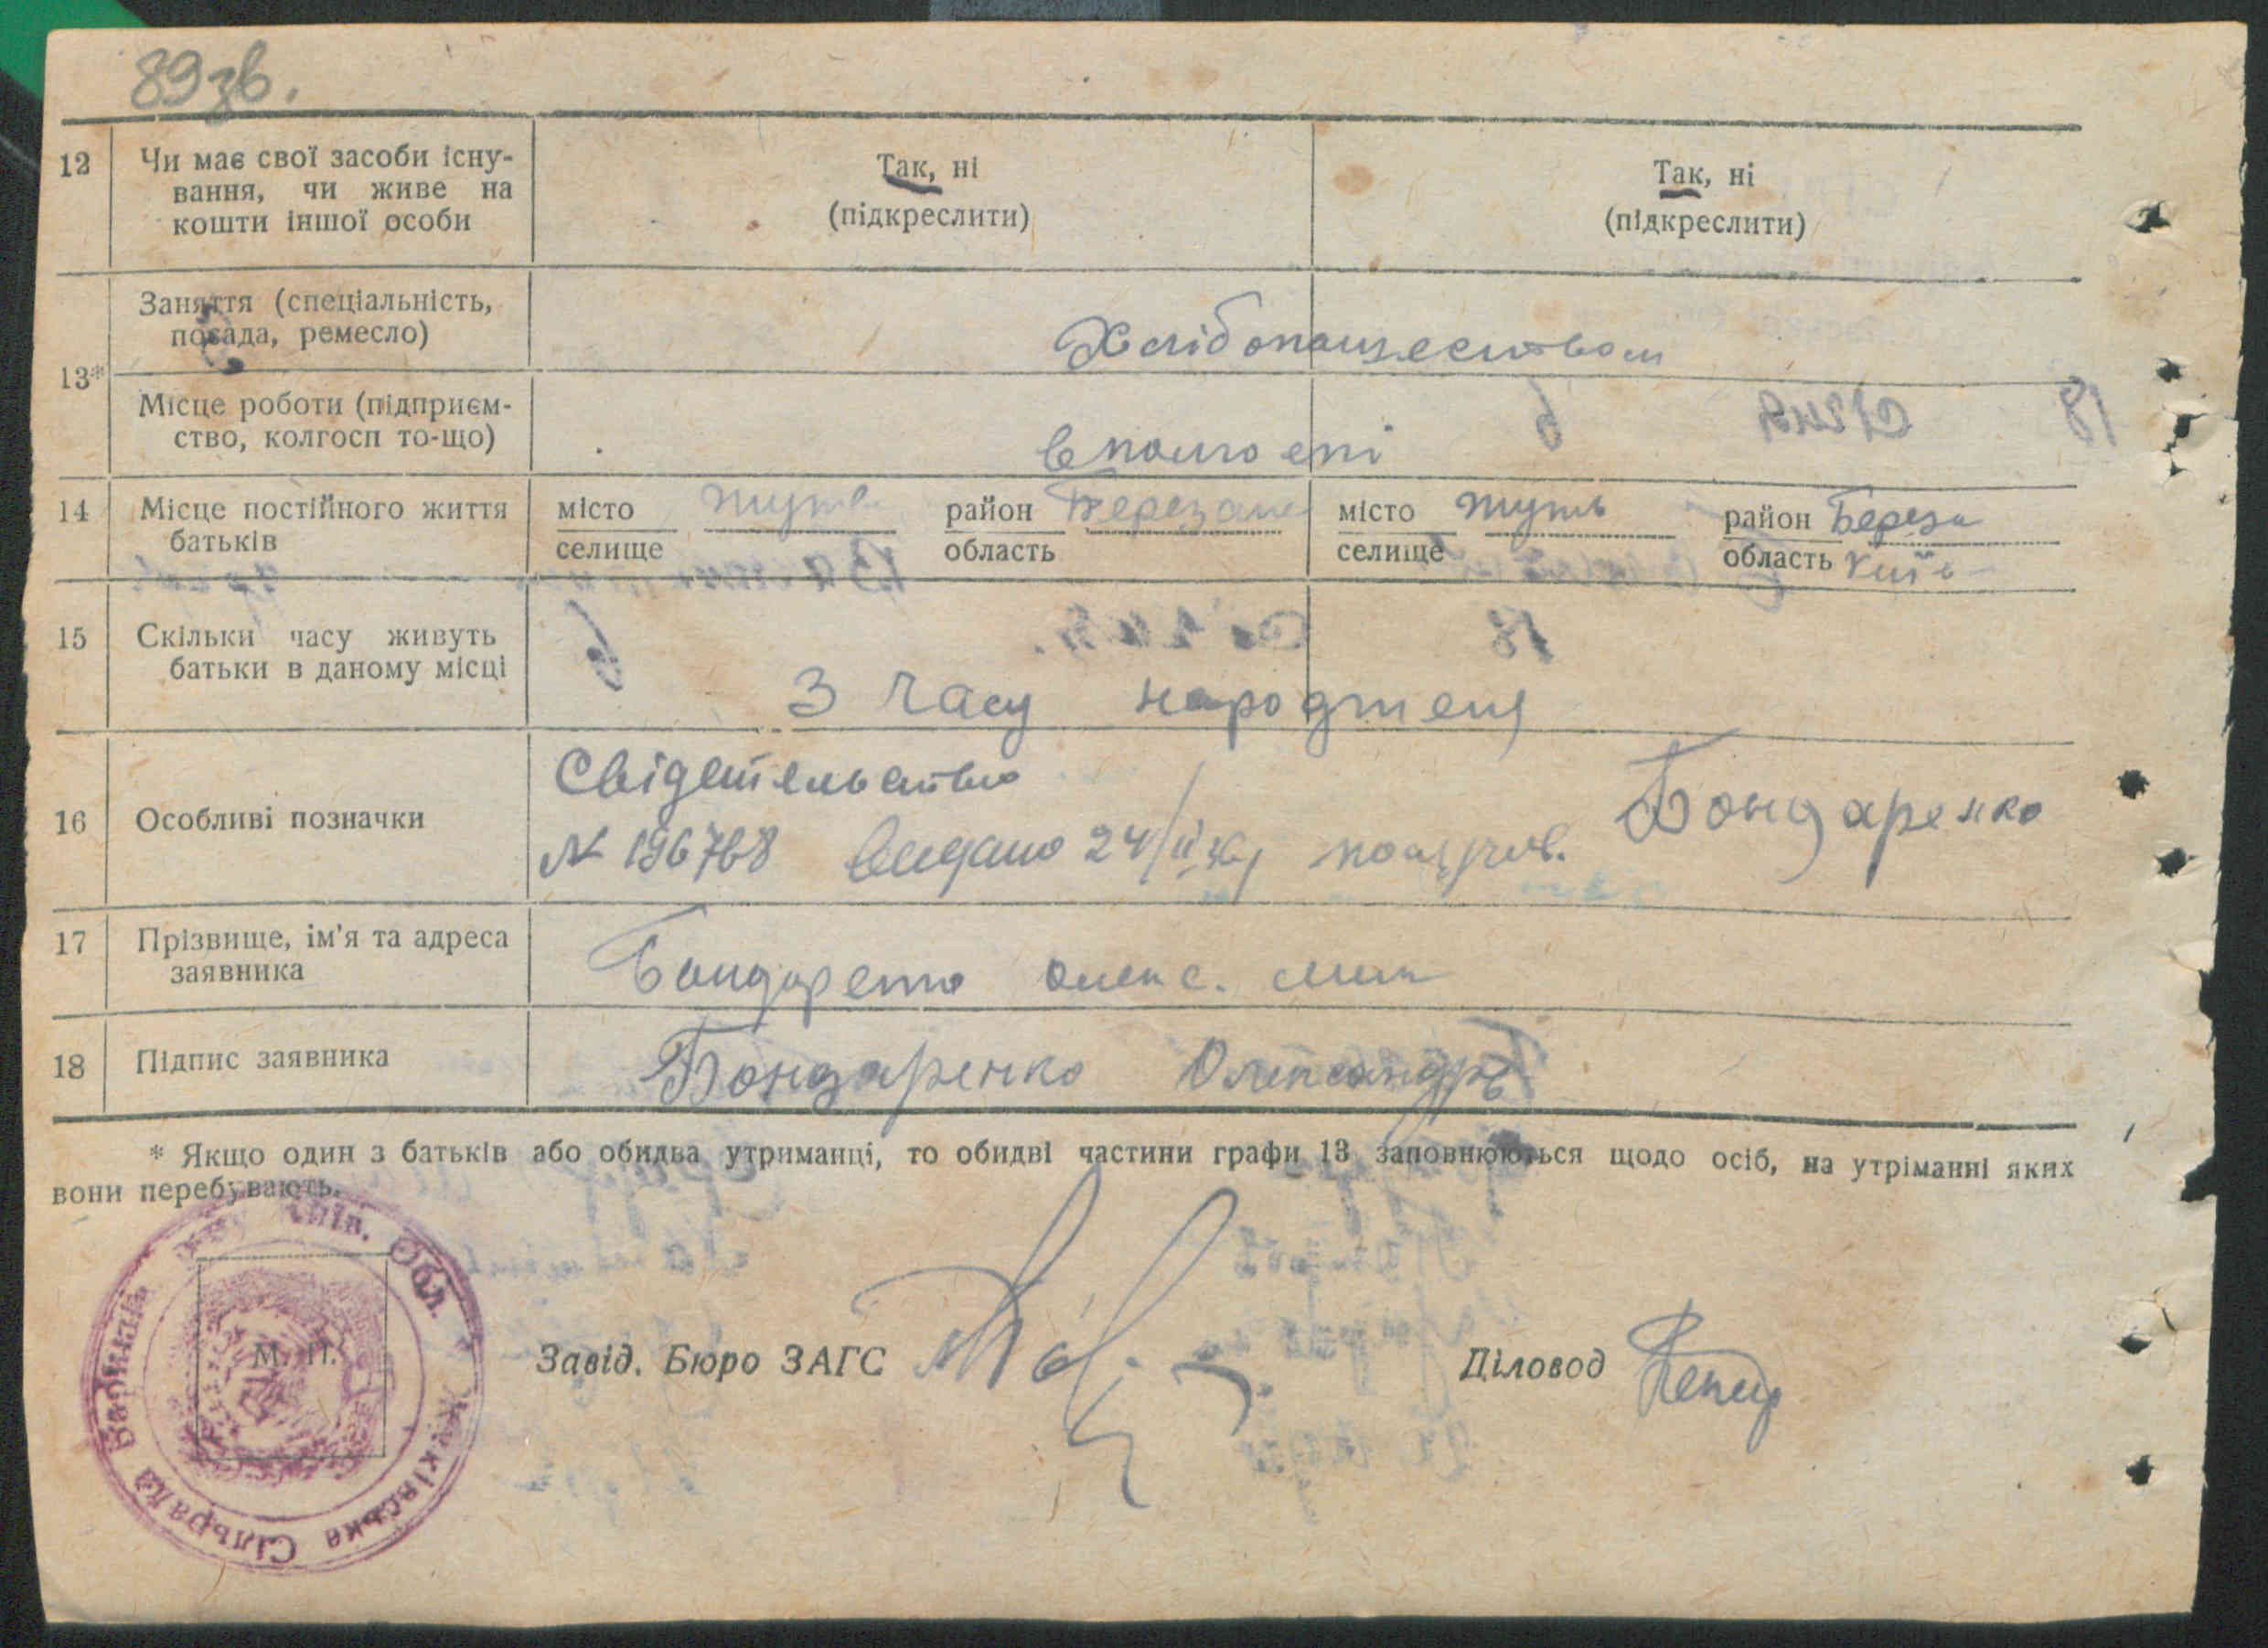 89зв.
12 Чи має свої засоби існу-
вання, чи живе на
кошти іншої особи
Так, ні
(підкреслити)
Так, ні
(підкреслити)
13*
Заняття (спеціальність,
посада, ремесло)
Хлібопашеством
Місце роботи (підприєм-
ство, колгосп то-що)
в
14 Місце постійного життя
батьків
місто
селище
район
область
місто
селище
район Береза
область Київ
15 Скільки часу живуть
батьки в даному місці
З часу
16 Особливі позначки
Свідетельство
N 196768 видано 24/II Бондаренко
17 Прізвище, ім'я та адреса
заявника
Бондаренко Олекс.
18 Підпис заявника
Бондаренко Олександр
* Якщо один з батьків або обидва утриманці, то обидві частини графи 13 заповнюються щодо осіб, на утріманні яких
вони перебувають.
Київ. Обл.
Сільрада
М. П.
Завід. Бюро ЗАГС
Діловод